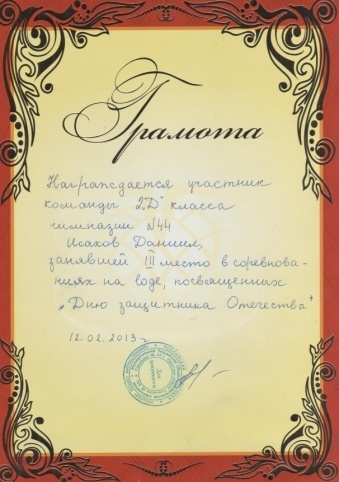 Грамота
Награждается участник
команды 2„Д" класса
гимназии №44
Исаков Даниил,
занявшей III место в соревнова-
ниях на воде, посвященных
„Дню защитника Отечества"
12.02.2013г.